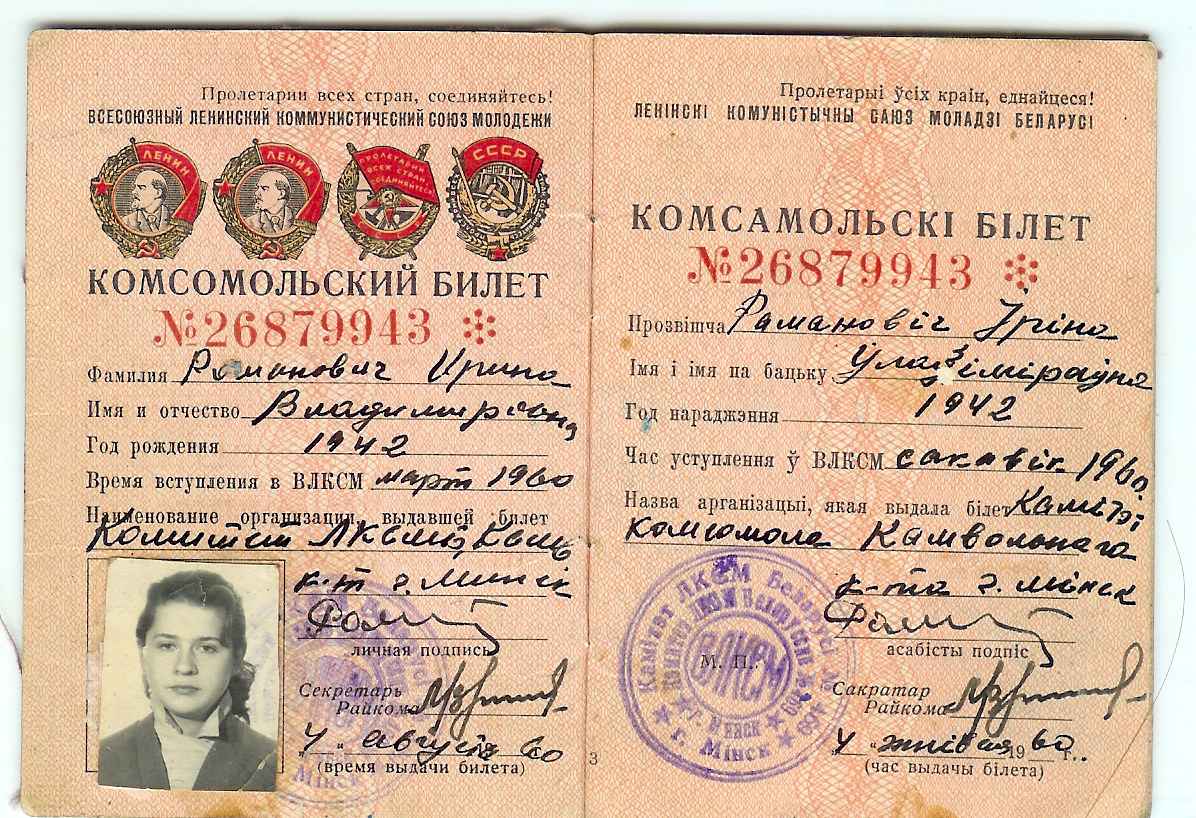 Пролетарии всех стран, соединяйтесь!
ВСЕСОЮЗНЫЙ ЛЕНИНСКИЙ КОММУНИСТИЧЕСКИЙ СОЮЗ МОЛОДЕЖИ
ЛЕНИН
ЛЕНИН
ПРОЛЕТАРИИ ВСЕХ СТРАН СОЕДИНЯЙТЕСЬ
СССР
КОМСОМОЛЬСКИЙ БИЛЕТ
№26879943
Фамилия Романович Ирина
Имя и отчество Владимировна
Год рождения 1942
Время вступления в ВЛКСМ март 1960
Наименование организации, выдавшей билет
Комитет ЛКСМБ
к-т г. Минск
личная подпись
Секретарь
Райкома
4 " август 1960
(время выдачи билета)
3
Пролетарыі ўсіх краін, еднайцеся!
ЛЕНІНСКІ КОМУНІСТЫЧНЫ САЮЗ МОЛАДЗІ БЕЛАРУСІ
КОМСАМОЛЬСКІ БІЛЕТ
№26879943
Прозвішча Рамановіч Ірина
Імя і імя па бацьку Уладзіміраўна
Год нараджэння 1942
Час уступлення ў ВЛКСМ сакавік 1960
Назва арганізацыі, якая выдала білет Камітэт
комсомола Камвольнага
к-та г. Мінск
асабісты подпіс
М. П.
Камітэт ЛКСМ Беларусі
ВЛКСМ
г. Минск
г. Мінск
Сакратар
Райкома
4 " жніўня 1960 г.
(час выдачы білета)